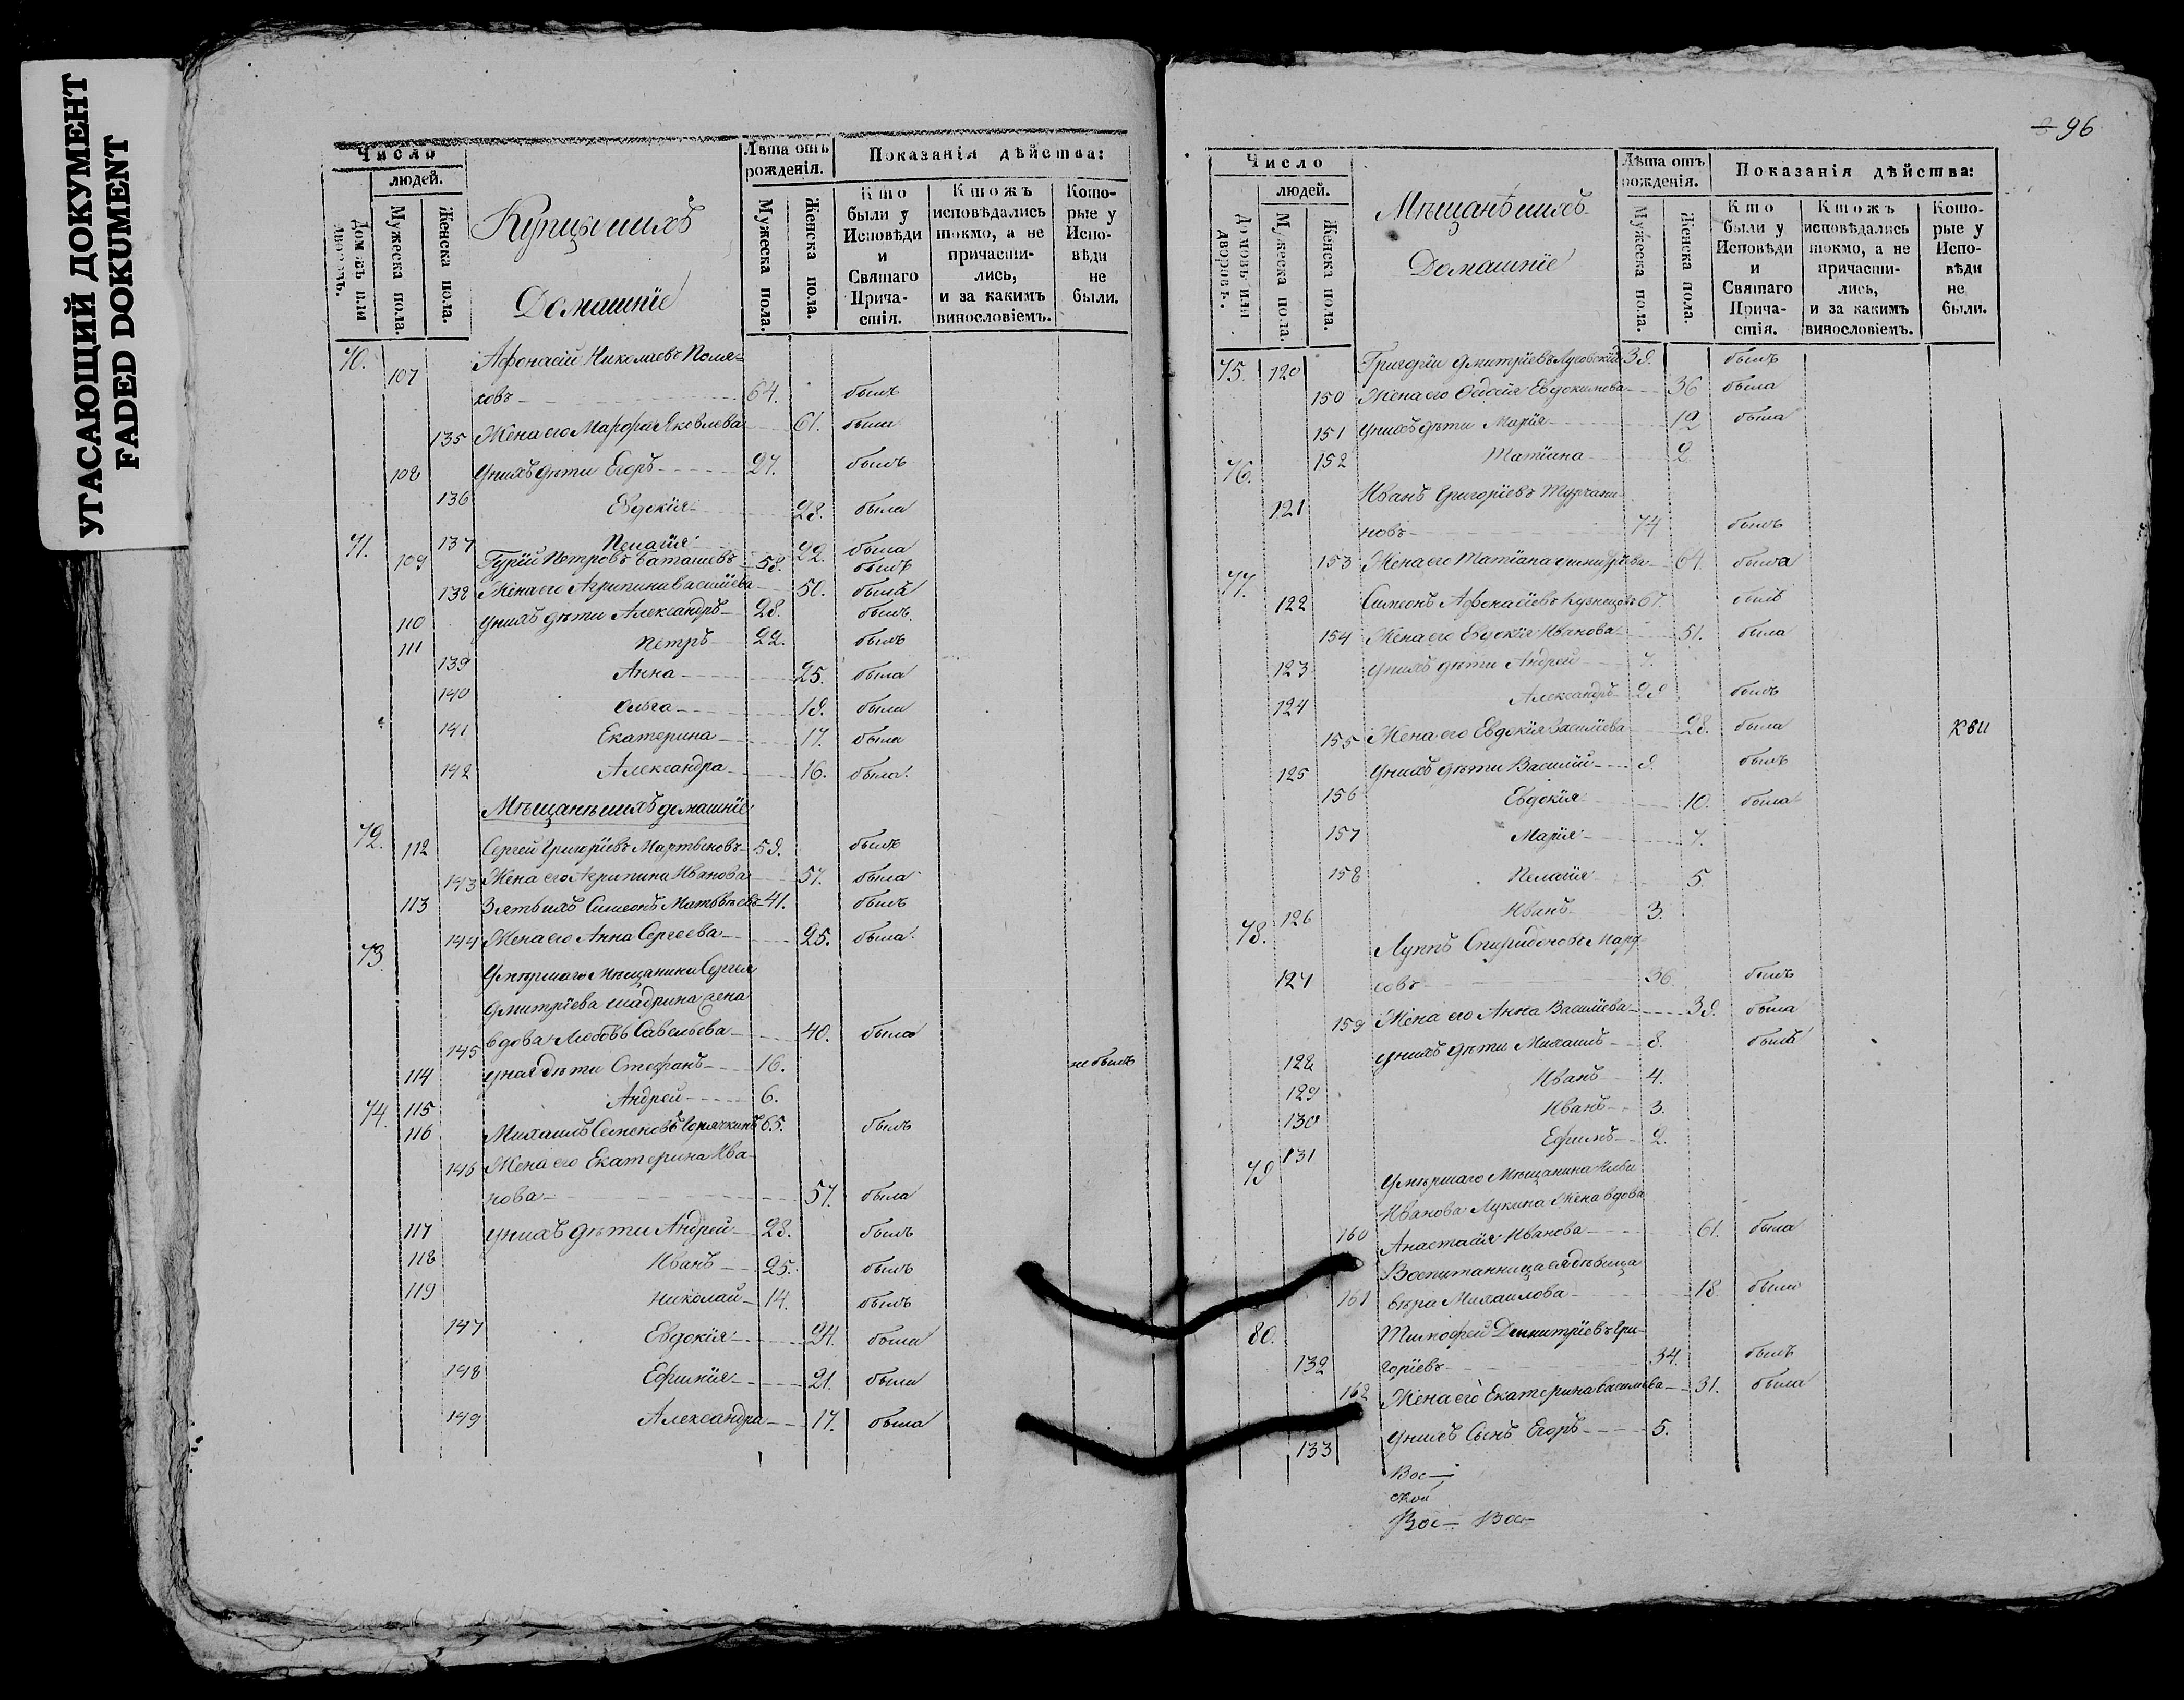 УГАСАЮЩИЙ ДОКУМЕНТ
FADED DOKUMENT
Число
людей.
Домовъ или дворовъ.
Мужеска пола.
Женска пола.
Купцы и ихъ
Домашніе
Лѣта отъ рожденія.
Мужеска пола.
Женска пола.
Показанія дѣйства:
Кто были у Исповѣди и Святаго Причастія.
Ктожъ исповѣдались токмо, а не причастились, и за какимъ винословіемъ.
Которые у Исповѣди не были.
70. 107 Афонасій Николаевъ Поля-
ковъ 64. былъ
135 Жена его Марфа Яковлева 61. была
108 У нихъ дѣти Егоръ 27. былъ
136 Евдокія 28. была
137 Пелагія 22. была
71. 109 Гурій Петровъ Баташевъ 58. былъ
138 Жена его Агрипина Васильева 50. была
110 У нихъ дѣти Александръ 28. былъ.
111 Петръ 22. былъ
139 Анна 25. была
140 Ольга 19. была
141 Екатерина 17. была
142 Александра 16. была.
Мѣщане и ихъ домашніе
72. 112 Сергей Григорьевъ Мартыновъ 59. былъ
143 Жена его Агрипина Иванова 57. была
113 Зять ихъ Симеонъ Матвѣевъ 41. былъ
144 Жена его Анна Сергеева 25. была.
73. Умершаго Мѣщанина Сергея
Дмитріева Шадрина жена
145 вдова Любовь Савельева 40. была
114 У нея дѣти Стефанъ 16. не былъ
115 Андрей 6.
74. 116 Михаилъ Семеновъ Горячкинъ 65. былъ
146 Жена его Екатерина Ива-
нова 57. была
117 У нихъ дѣти Андрей 28. былъ
118 Иванъ 25. былъ
119 Николай 14. былъ
147 Евдокія 24. была
148 Ефимія 21. была
149 Александра 17. была
96
Число
людей.
Домовъ или дворовъ.
Мужеска пола.
Женска пола.
Мѣщане и ихъ
Домашніе
Лѣта отъ рожденія.
Мужеска пола.
Женска пола.
Показанія дѣйства:
Кто были у Исповѣди и Святаго Причастія.
Ктожъ исповѣдались токмо, а не причастились, и за какимъ винословіемъ.
Которые у Исповѣди не были.
75. 120 Григорій Дмитріевъ 39. былъ
150 Жена его Федосія Евдокимова 36 была
151 У нихъ дѣти Марія 12 была
152 Татіана 2
76. 121 Иванъ Григоріевъ Турчани-
новъ 74 былъ
153 Жена его Татіана Димитріева 64. была
77. 122 Симеонъ Афонасіевъ Кузнецовъ 67. былъ
154 Жена его Евдокія Иванова 51. была
123 У нихъ дѣти Андрей 7.
124 Александръ 29 былъ
155 Жена его Евдокія Васильева 28. была
125 У нихъ дѣти Василій 9. былъ
156 Евдокія 10. была
157 Марія 7.
158 Пелагія 5
126 Иванъ 3.
78. Луппъ Спиридоновъ
127 36. былъ
159 Жена его Анна Васильева 39. была
128 У нихъ дѣти Михаилъ 8. былъ
129 Иванъ 4.
130 Иванъ 3.
131 Ефимъ 2.
79 Умершаго Мѣщанина Ильи
Иванова Лукина жена вдова
160 Анастасія Иванова 61. была
Воспитанница ея дѣвица
161 Вера Михаилова 18 была
80. Тимофей Димитріевъ Гри-
132 горіевъ 34. былъ
162 Жена его Екатерина Васильева 31. была
133 У нихъ Сынъ Егоръ 5.
Вос-
Вос- Вос-